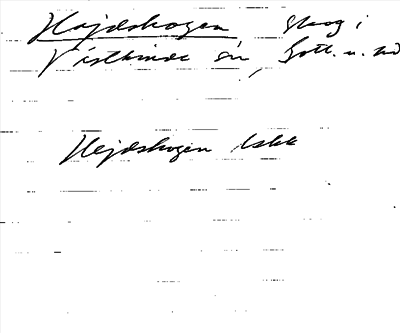 Hajdskogen skog i
Visthinde sn, Gotl. n. hd
Hejdskogen bskk